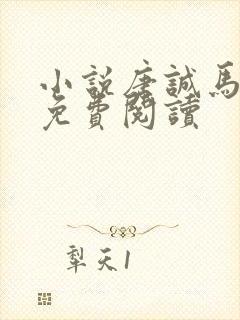 小説唐誠馬
免費閱讀
犁天1